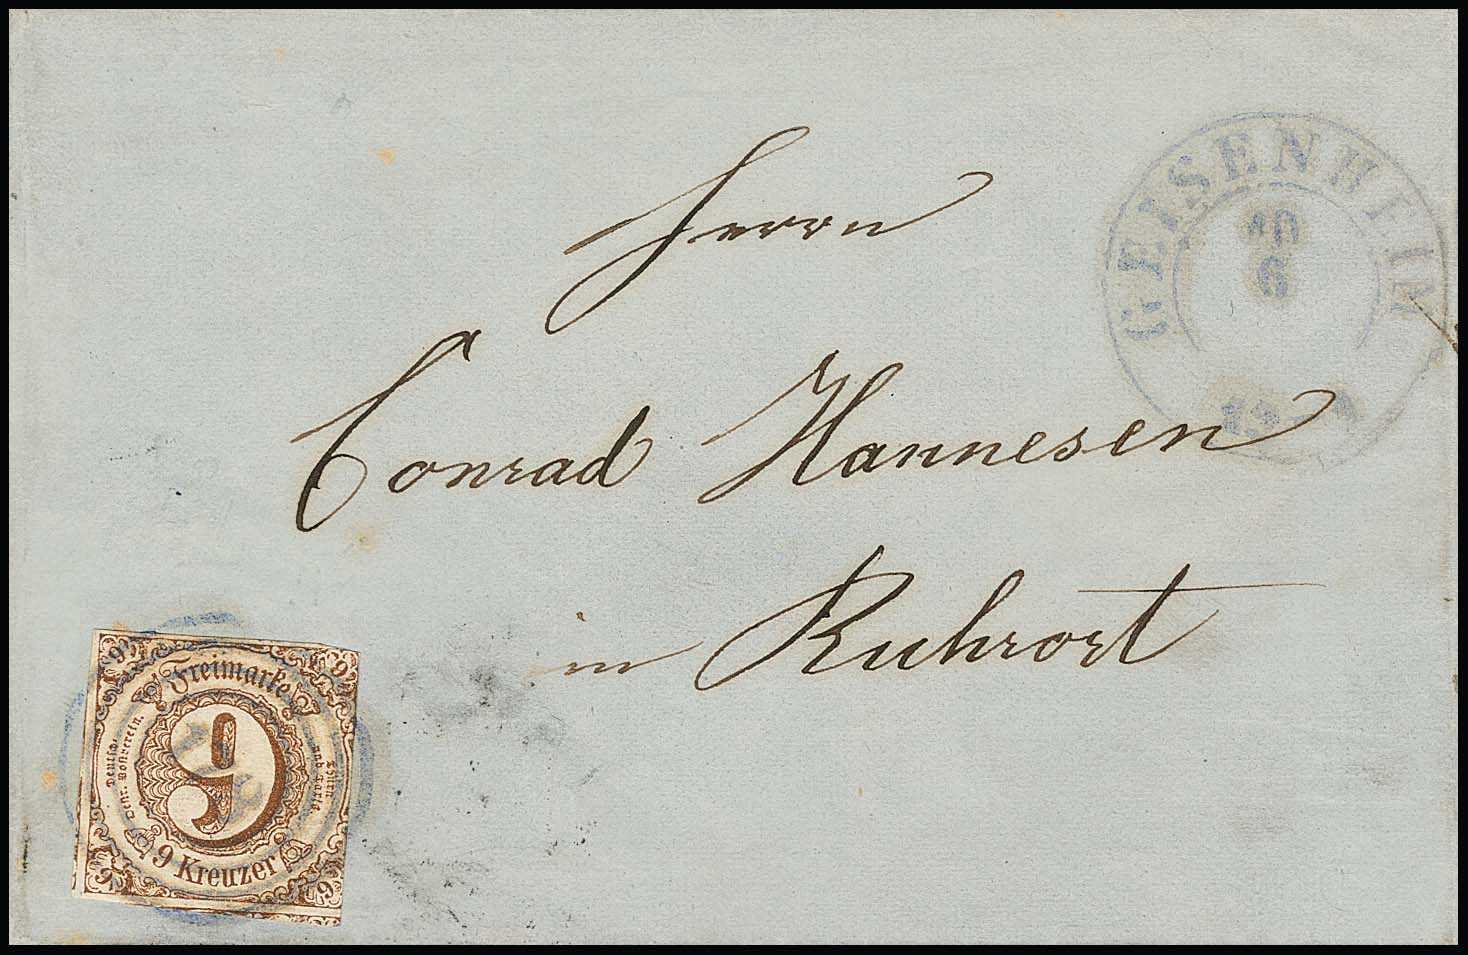 GEISENHEIM
10
6
Herrn
Conrad Hannesen
in Ruhrort
9 9
Freimarke
Deutsch-Oestr. Postverein.
Thurn und Taxis
9
9 Kreuzer
9 9